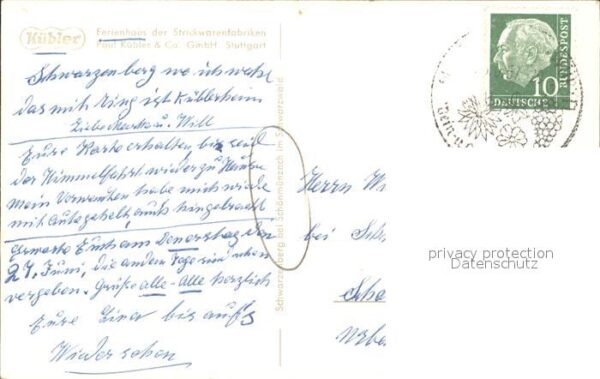 Kübler
Ferienhaus der Strickwarenfabriken
Paul Kübler & Co. GmbH. Stuttgart
Schwarzenberg wo ich wahr
das mit Ring ist Küblerheim
Liebe u. Will
Eure Karte erhalten, bis seid
der Himmelfahrt wieder zu Hause
mein Verwanten habe mich wieder
mit Auto geholt, auch hingebracht
erwarte Euch am Donerstag den
27. Juni, die andern Tage sind schon
vergeben. Grüße alle - Alle herzlich
Eure Lina bis aufs
Wiedersehen
Schwarzenberg bei Schönmünzach im Schwarzwald
10
DEUTSCHE
BUNDESPOST
Herrn W
bei Sch
Scho
privacy protection
Datenschutz